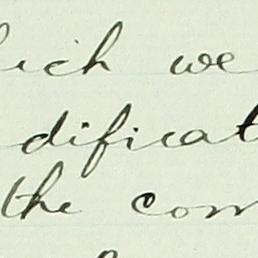 hich we
dificat
the com